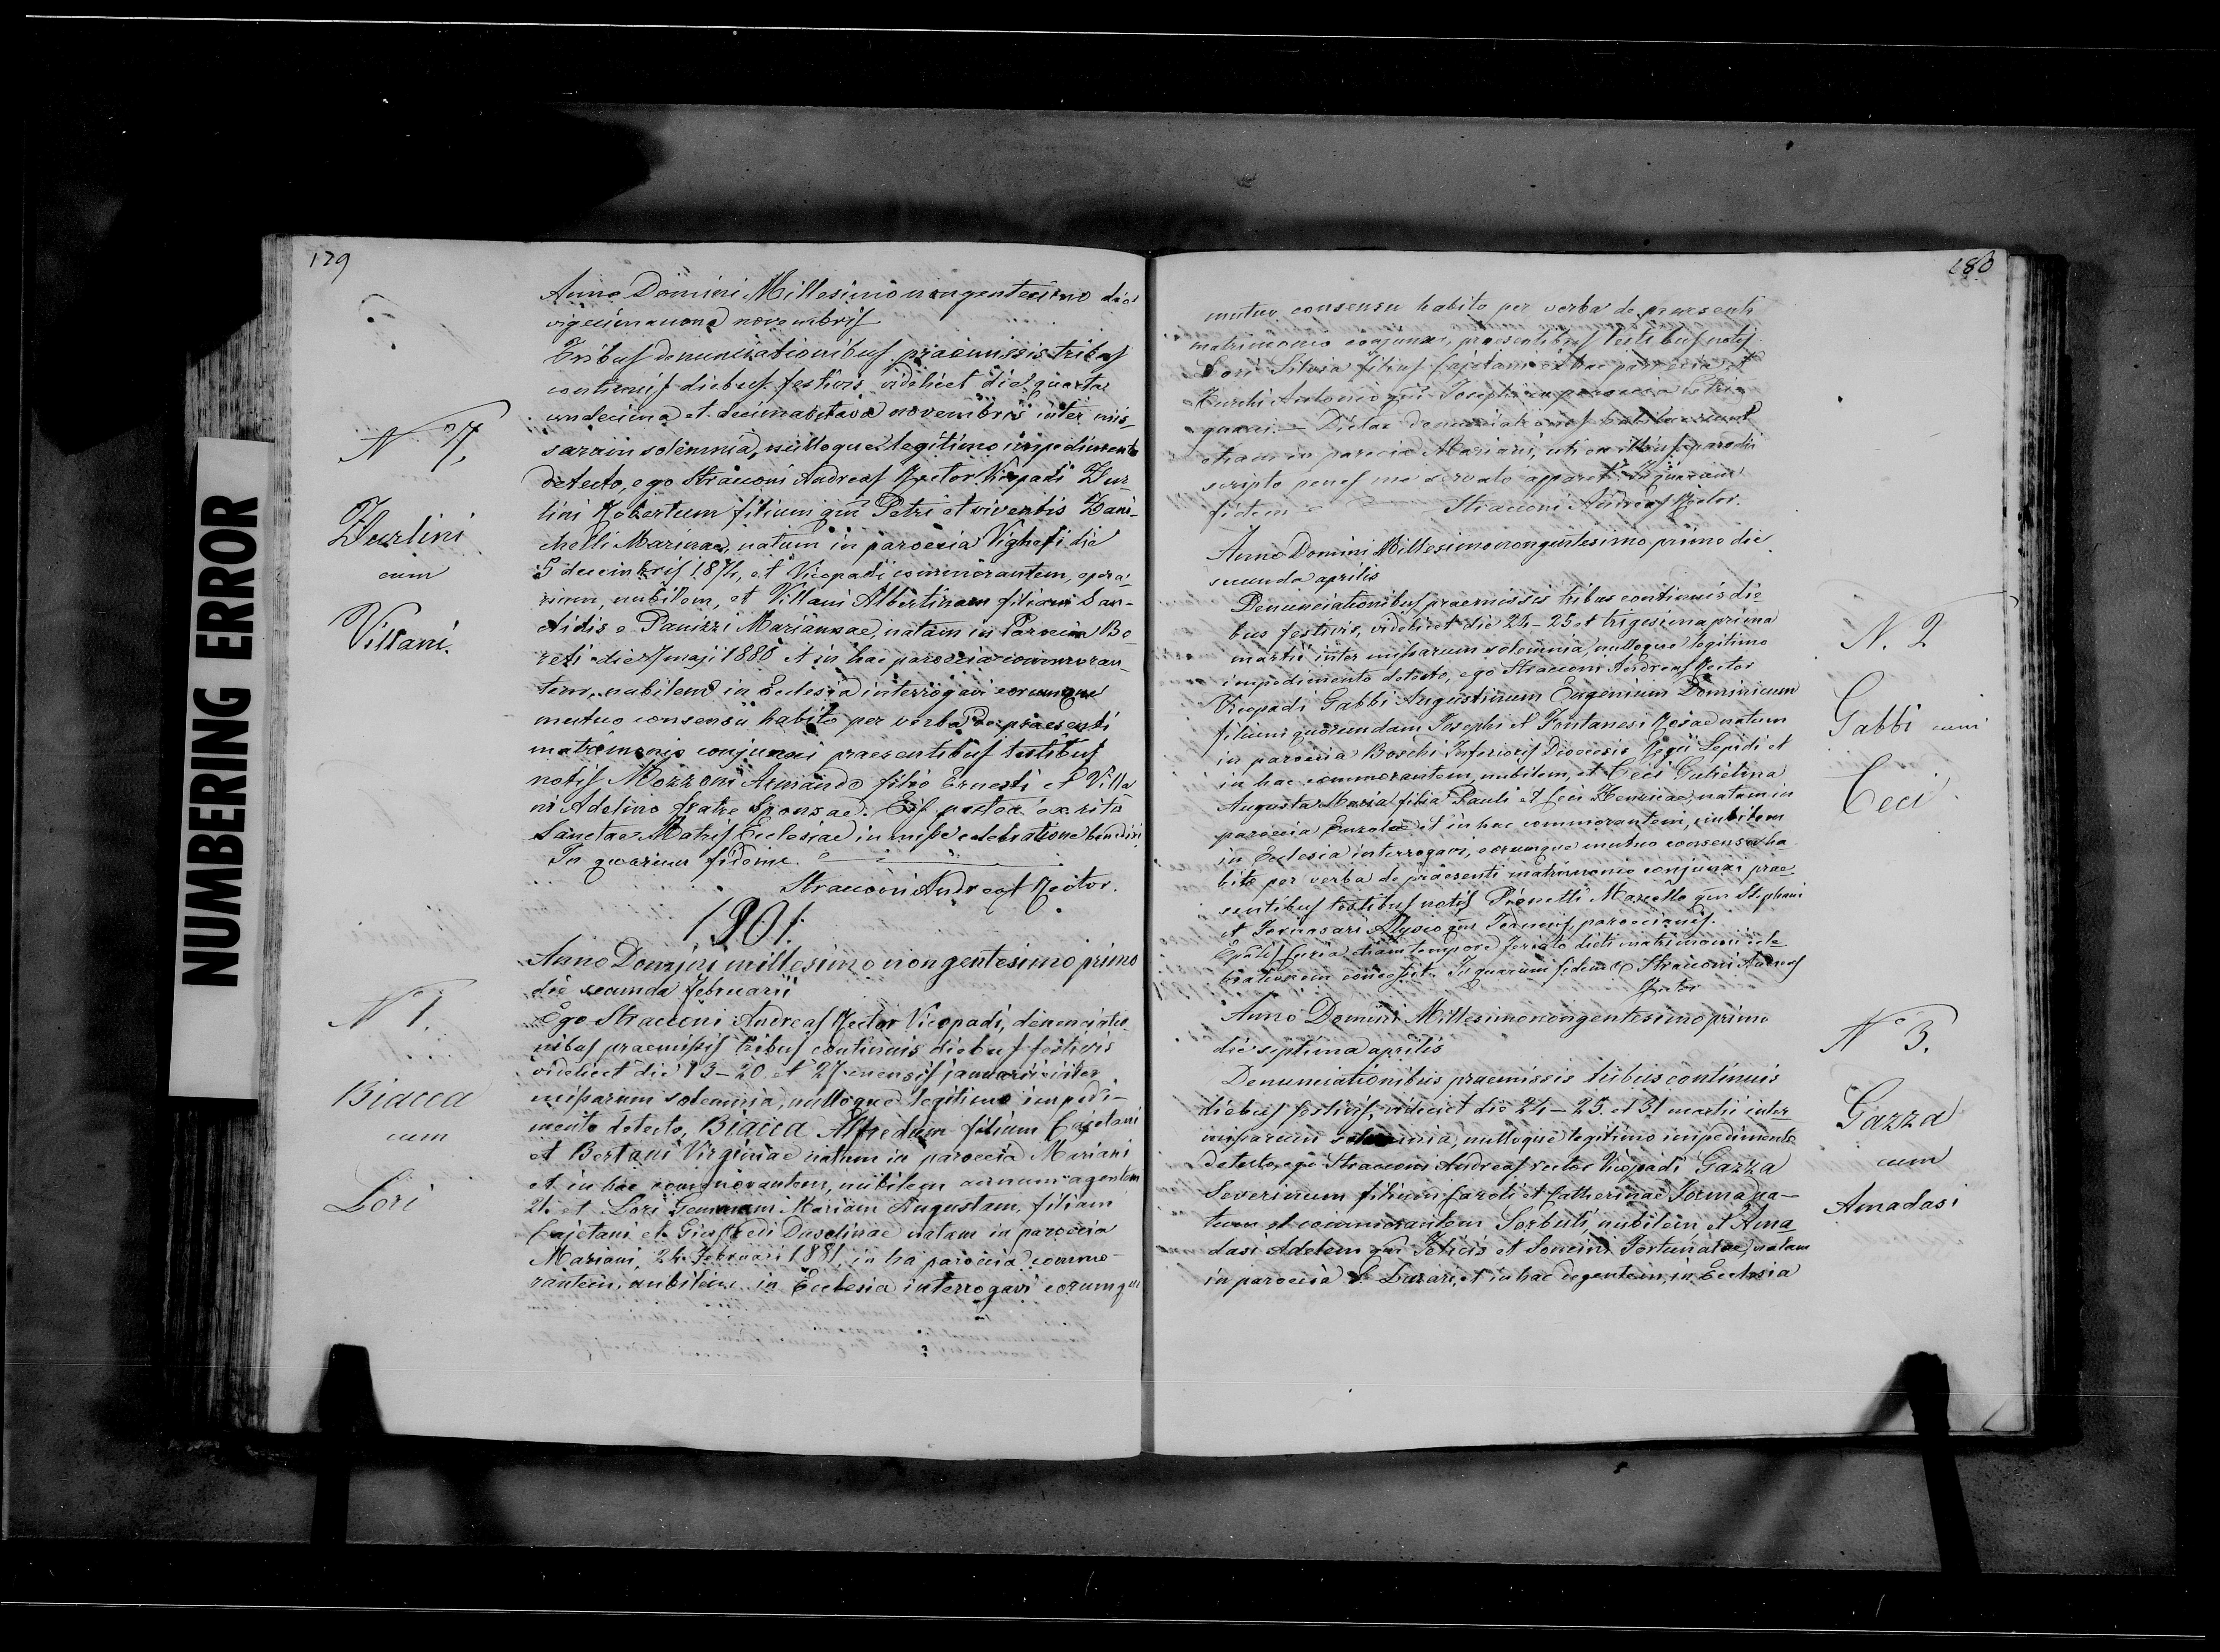 NUMBERING ERROR
179
Anno Domini Millesimo nongentesimo die
vigesimanona novembris
Tribus denunciationibus praemissis tribus
continuis diebus festivis videlicet die quarta
undecima et decimaoctava novembris inter mis-
N 7.
sarum solemnia, nulloque legitimo impedimento
detecto, ego Stracconi Andreas Rector Vicopadi Zur-
Zurlini
lini Robertum filium qm Petri et viventis Zani-
chelli Marinae, natum in paroecia Vigheffi die
cum
5 decembris 1874, et Vicopadi commorantem, opera-
rium, nubilem, et Villani Albertinam filiam San-
Villani.
ctidis e Panizzi Mariannae, natam in Paroecia Bo-
reti die 7 maji 1880 et in hac paroecia commoran
tem, nubilem in Ecclesia interrogavi eorumque
mutuo consensu habito per verba de praesenti
matrimonio conjunxi praesentibus testibus
notis Mozzoni Armando filio Ernesti et Villa
ni Adelino fratre Sponsae. Eis postea ex ritu
Sanctae Matris Ecclesiae in missae celebratione benedixi
In quarum fidem.
Stracconi Andreas Rector.
1901.
Anno Domini millesimo nongentesimo primo
die secunda februarii
N 1.
Ego Stracconi Andreas Rector Vicopadi, denunciatio-
nibus praemissis tribus continuis diebus festivis
videlicet die 13-20 et 27 mensis januarii inter
Biacca
missarum solemnia, nulloque legitimo impedi-
cum
mento detecto, Biacca Alfredum filium Cajetani
et Bertani Virginiae natum in paroecia Mariani
et in hac commorantem, nubilem annum agentem
Lori
24 et Lori Gemmam Mariam Augustam, filiam
Cajetani et Giuffredi Duselinae natam in paroecia
Mariani, 24 Februari 1881, in ha paroecia commo-
rantem, nubilem in Ecclesia interrogavi eorumque
180
mutuo consensu habito per verba de praesenti
matrimonio conjunxi, praesentibus testibus notis
Lori Silvia filius Cajetani ex hac paroecia et
Zurchi Antonio qm Josephi ex paroecia
Dictae denunciationes habitae sunt
etiam in parecia Mariani, uti ex illius parochi
scripto penes me servato apparet. In quarum
fidem
Stracconi Andreas Rector
Anno Domini Millesimo nongentesimo primo die
secunda aprilis
Denunciationibus praemissis tribus continuis die
N. 2
bus festivis, videlicet die 24-25 et trigesima prima
martii inter missarum solemnia, nulloque legitimo
impedimento detecto, ego Stracconi Andreas Rector
Vicopadi Gabbi Augustinum Eugenium Dominicum
Gabbi cum
filium quorundam Josephi et Fontanesi Rosae natum
in paroecia Boschi Inferioris Dioecesis Regii Lepidi et
in hac commorantem, nubilem, et Ceci Gulielina
Ceci
Augusta Maria filia Pauli et Ceci Henricae, natam in
paroecia Enzolae et in hac commorantem, nubilem
in Ecclesia interrogavi, eorumque mutuo consensu ha
bito per verba de praesenti matrimonio conjunxi prae-
sentibus testibus notis Pionetti Marcello qm Stephani
et Fornasari Alysio qm paroecianis.
Epalis Curia etiam tempore feriato dicti matrimonii cele
brationem concessit. In quarum fidem Stracconi Andreas
Rector
Anno Domini Millesimonongentesimo primo
N 3.
die septima aprilis
Denunciationibus praemissis tribus continuis
diebus festivis, videlicet die 24-25 et 31 martii inter
Gazza
missarum solemnia, nulloque legitimo impedimento
cum
detecto, ego Stracconi Andreas rector Vicopadi Gazza
Severinum filium Caroli et Catherinae na-
Amadasi
tum et commorantem Sorbuli, nubilem, et Ama
dasi Adelem qm Felicis et Soncini Fortunatae, natam
in paroecia S. Lazari, et in hac degentem, in Ecclesia